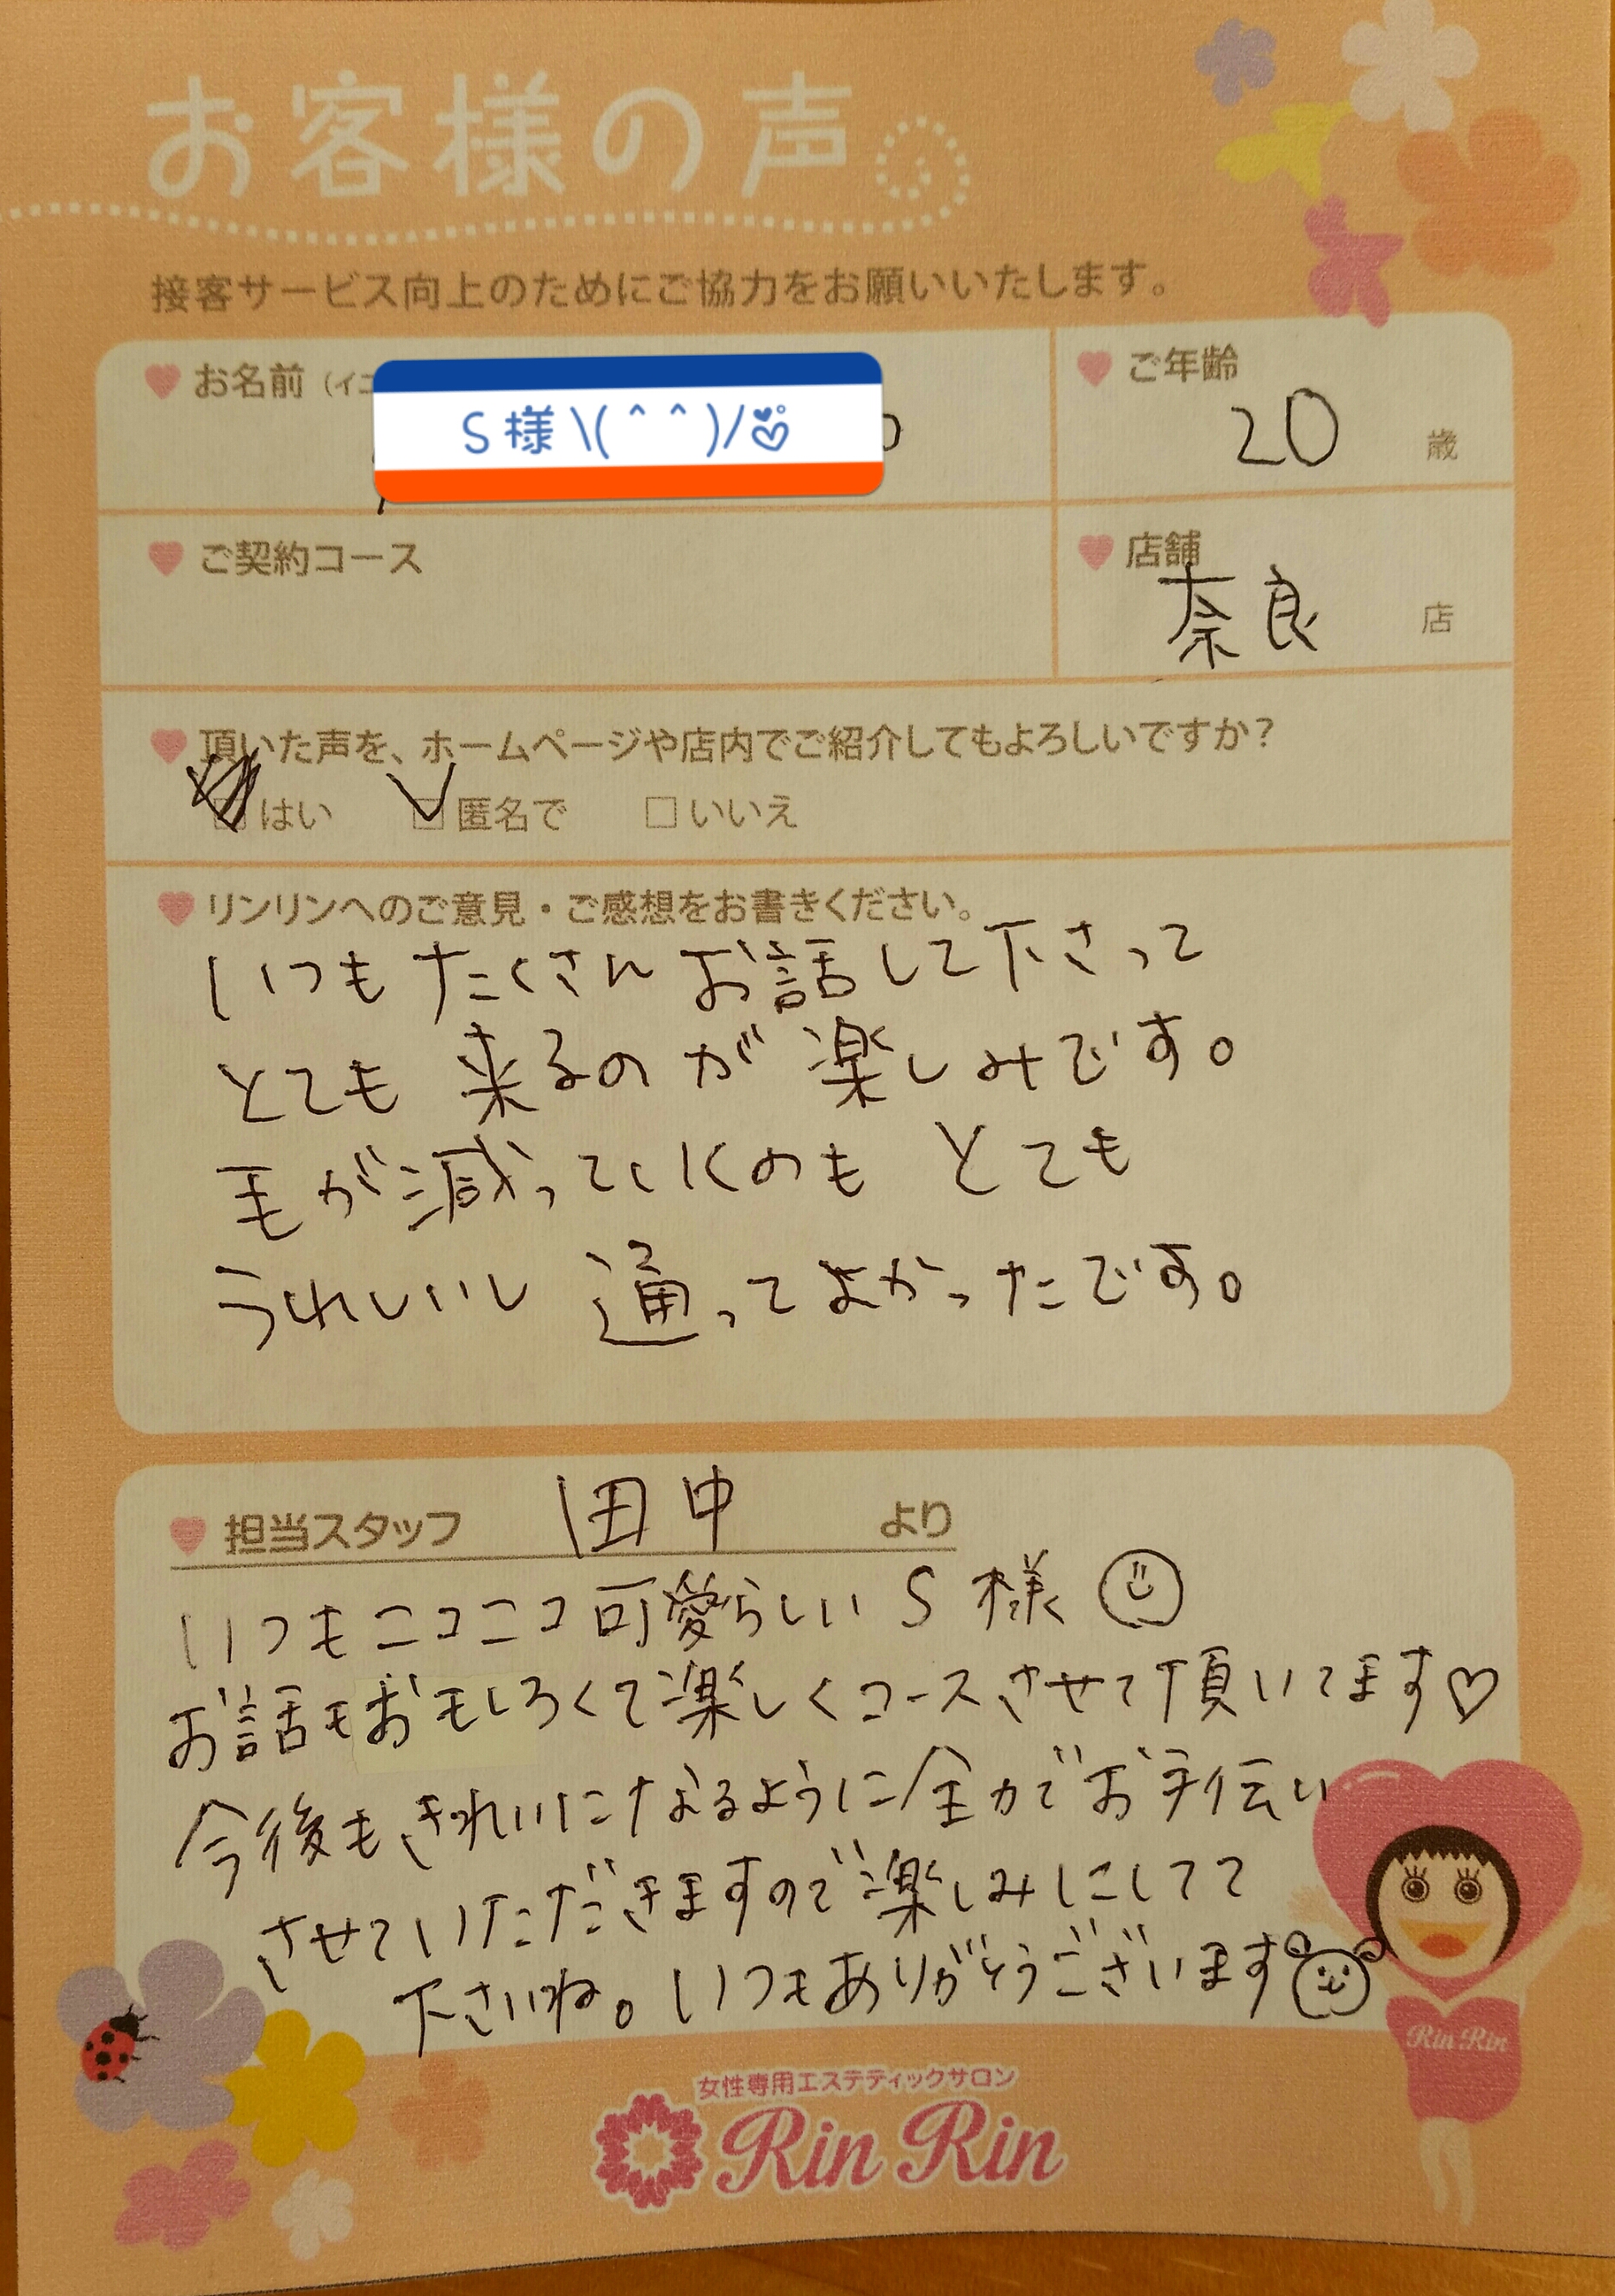 お客様の声
接客サービス向上のためにご協力をお願いいたします。
お名前
S様\(^^)/
ご年齢
20 歳
ご契約コース
店舗
奈良 店
頂いた声を、ホームページや店内でご紹介してもよろしいですか?
はい 匿名で いいえ
リンリンへのご意見・ご感想をお書きください。
いつもたくさんお話して下さって
とても来るのが楽しみです。
毛が減っていくのもとても
うれしいし通ってよかったです。
担当スタッフ 田中 より
いつもニコニコ可愛らしいS様
お話もおもしろくて楽しくコースさせて頂いてます♡
今後もきれいになるように全力でお手伝い
させていただきますので楽しみにしてて
下さいね。いつもありがとうございます
Rin Rin
女性専用エステティックサロン
Rin Rin